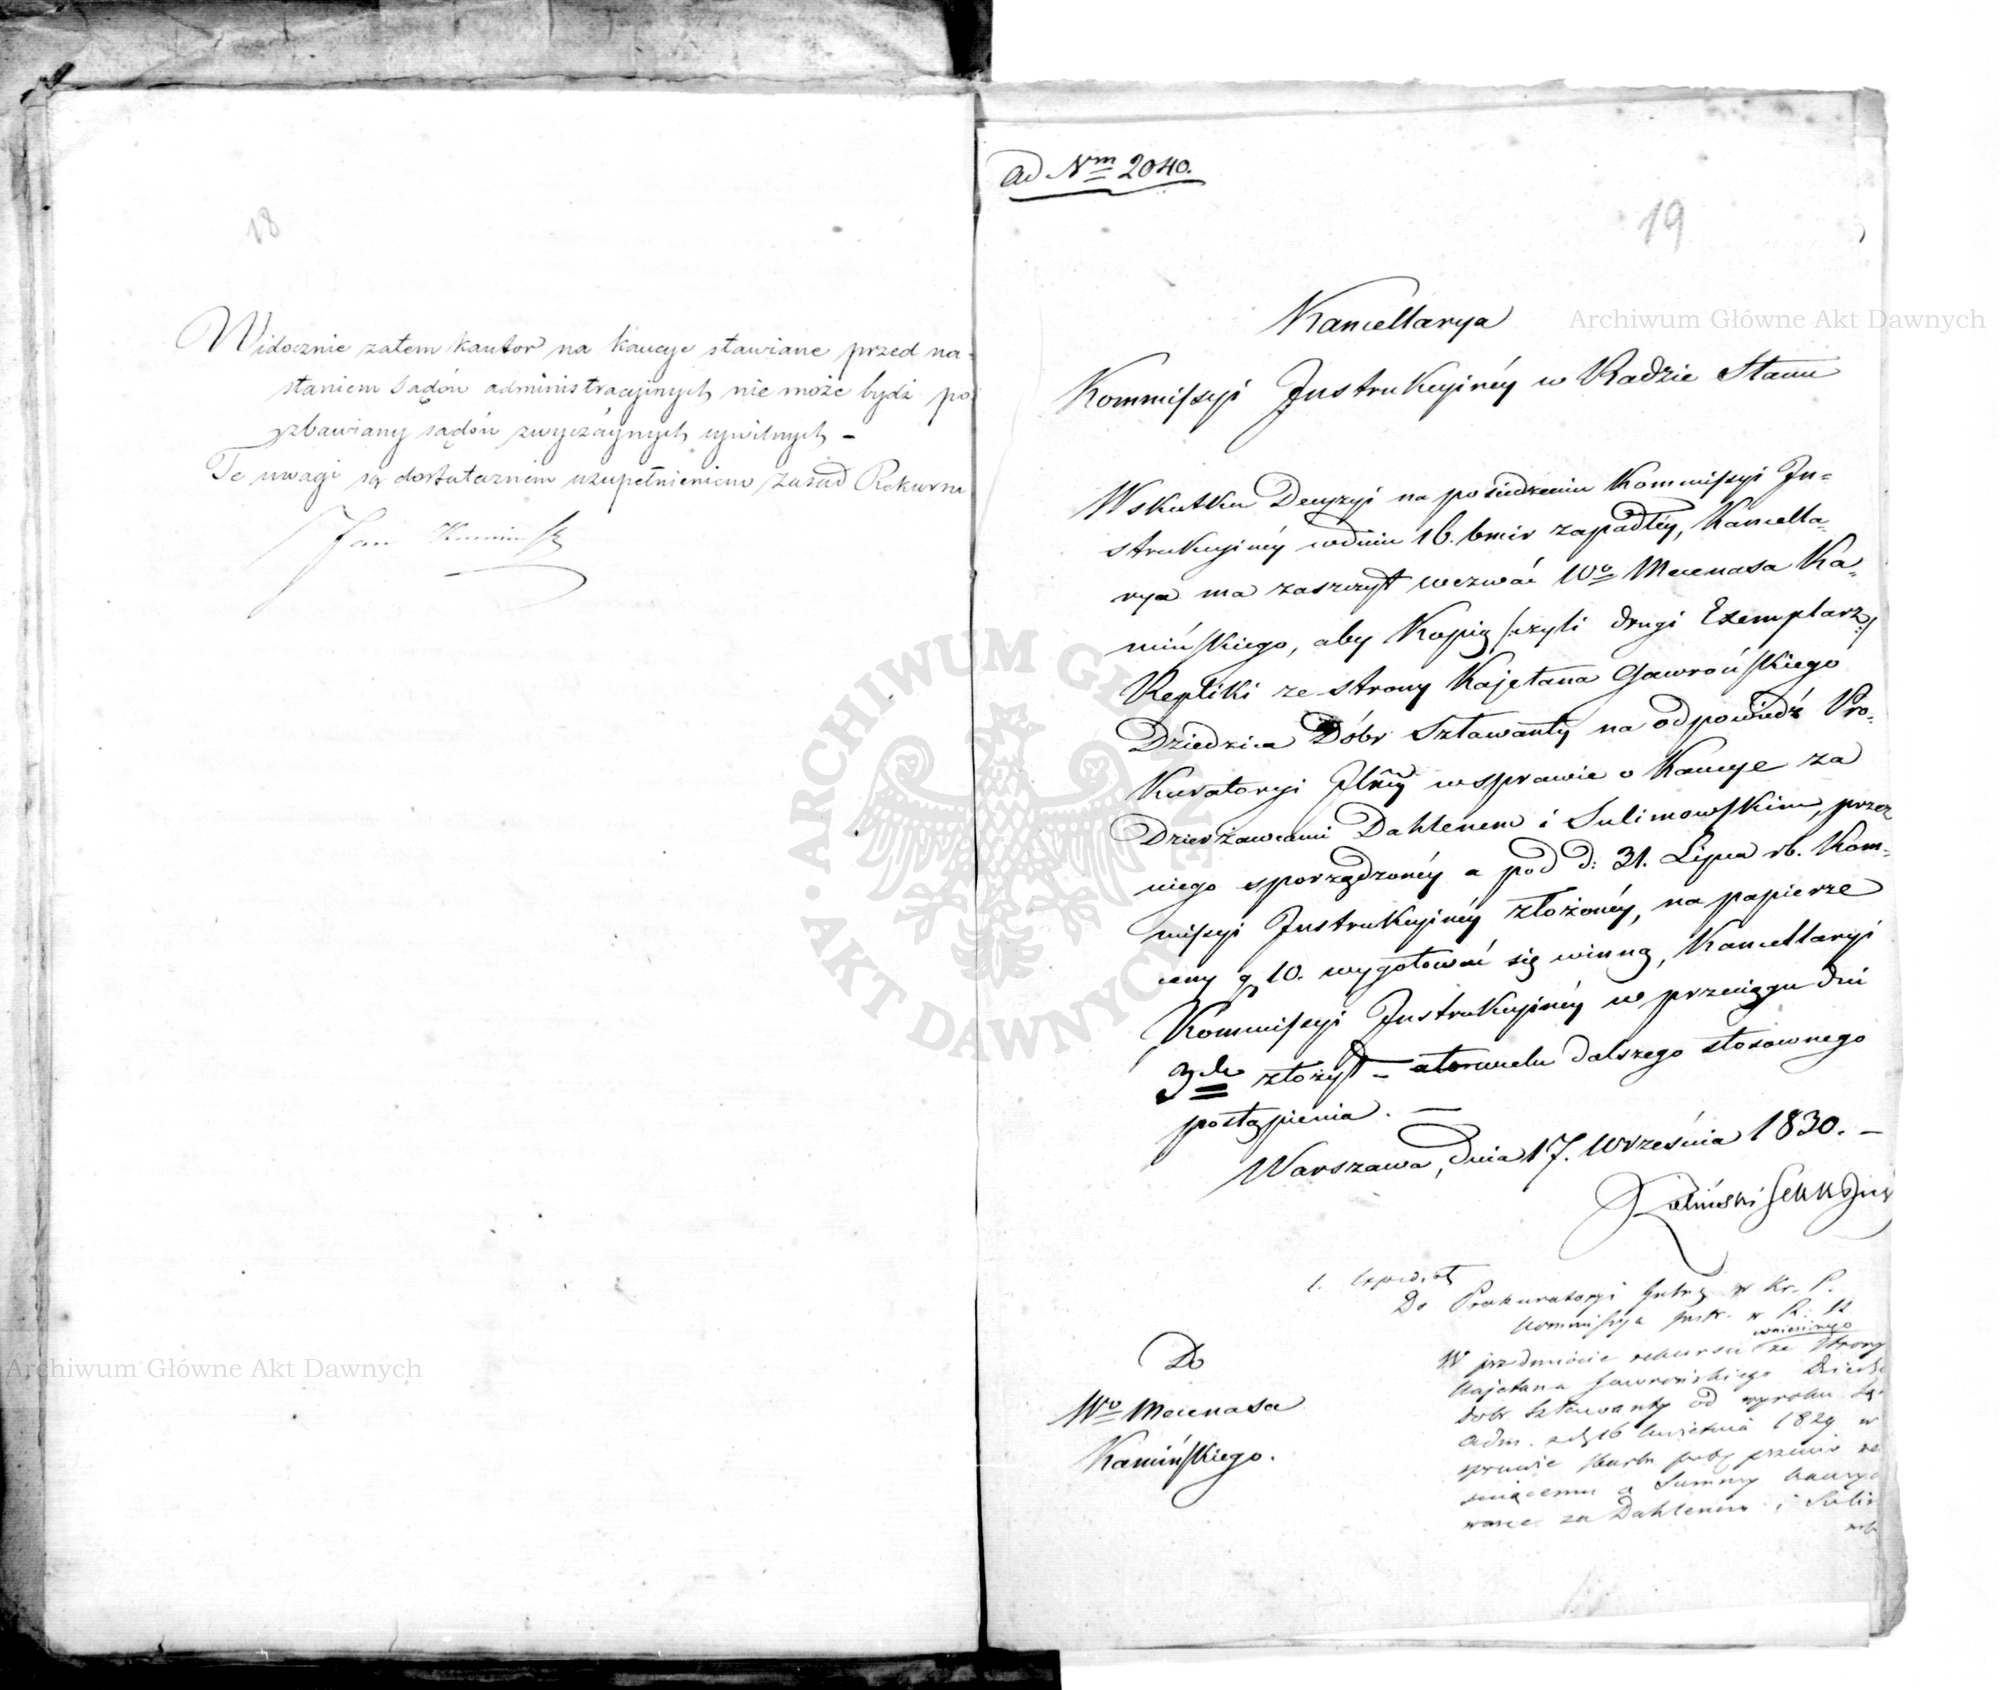 18
Widocznie zatem kantor na kaucye stawiane przed na-
staniem Sądów administracyjnych nie może bydź po
zbawiany sądów zwyczaynych cywilnych -
Te uwagi są dostatecznem uzupełnieniem zasad Rekursu
Jan Kamiński
Ad Nm 2040.
19
Kancellarya
Kommissyi Instrukcyinéy w Radzie Stanu
Wskutku Decyzyi na posiedzeniu Kommissyi In-
strukcyinéy w dniu 16. bmir zapadłéy, Kancella-
rya ma zaszczyt wezwać Wo Mecenasa Ka-
mińskiego, aby Kopię /:czyli drugi Exemplarz:/
Repliki ze strony Kajetana Gawrońskiego
Dziedzica Dóbr Sztawanty na odpowiedź Pro-
kuratoryi Jlnéy w sprawie o Kaucye za
Dzierżawcami Dahlenem i Sulimowskim, przez
niego sporządzonéy a pod d: 31. Lipca rb. Kom-
missyi Instrukcyinéy złożonéy, na papierze
ceny g 10. wygotować się winną, Kancellaryi
Kommissyi Instrukcyinéy w przeciągu dni
3ch złożył - a to w celu dalszego stosownego
postąpienia. -
Warszawa, dnia 17. Września 1830. -
Do
Wo Mecenasa
Kamińskiego.
Do Prokuratoryi w Kr. P.
Kommissya Instr. w R. St
wniesionego
W przedmiocie rekursu ze strony
Kajetana Gawrońskiego Dziedz
dobr Sztawanty od wyroku Są
Adm. z d. 16 Kwietnia 1829 w
sprawie Skarbu
o Summy kaucyo
wane za Dahlenem i Sulim
Archiwum Główne Akt Dawnych
Archiwum Główne Akt Dawnych
ARCHIWUM GŁÓWNE AKT DAWNYCH